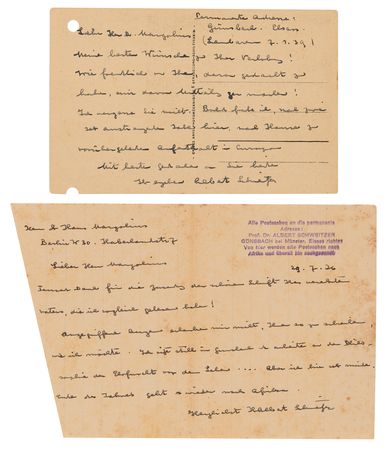 Permanente Adresse:
Günsbach. Elsass.
Lieber Herr Dr Margolius (Lambarene 7.1.39)
Meine besten Wünsche zu Ihrer
Wie freundlich von Ihnen, daran gedacht zu
haben, mir davon Mitteilg zu machen!
Ich vergesse Sie nicht. Bald fahr ich, nach zwei
Jahre hier, nach Hause zu
vorübergehendem Aufenthalt in Europa
Mit besten Gedanken an Sie beide
Ihr ergebener Albert Schweitzer
Herrn Dr Hans Margolius
Berlin W 30. Haberlandstr 7
Alle Postsachen an die permanente
Adresse:
Prof. Dr. ALBERT SCHWEITZER
GÜNSBACH bei Münster, Elsass richten
Von hier werden alle Postsachen nach
Afrika und überall hin nachgesandt
Lieber Herr Margolius
29.7.36
Dank für die der schönen Schrift Ihres
Vaters, die ich sogleich gelesen habe!
Angegriffene Augen erlauben mir nicht, Ihnen so zu schreiben,
wie ich möchte. Ich sitze still in Günsbach u arbeite an der
der Ehrfurcht vor dem Leben .... Aber ich bin so müde.
Ende des Jahres geht es wieder nach Afrika.
Herzlichst Ihr Albert Schweitzer